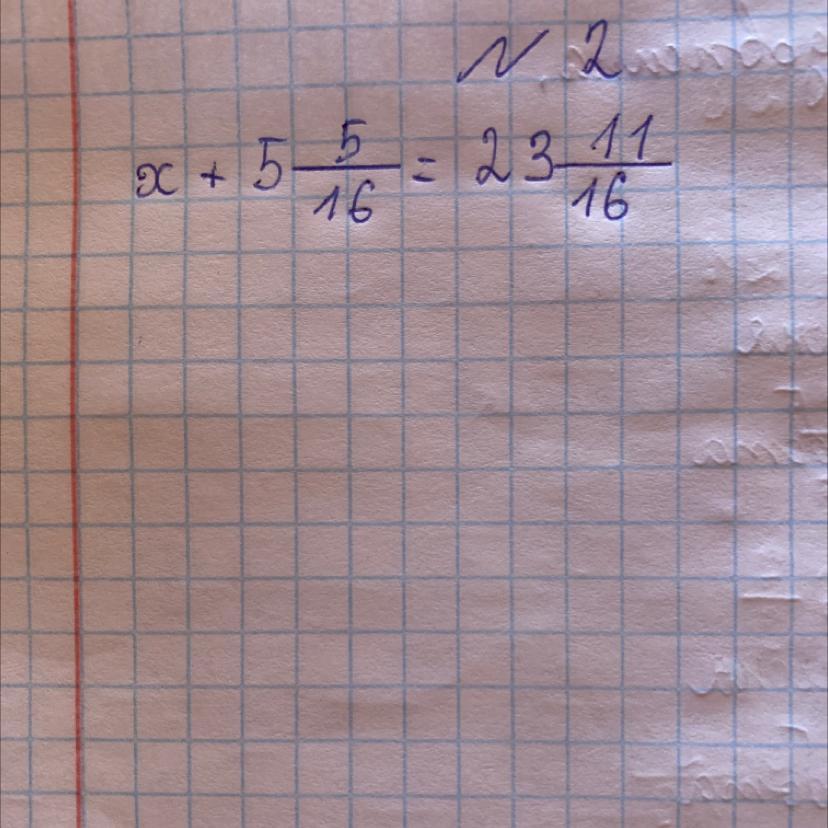 № 2
x + 5 5/16 = 23 11/16